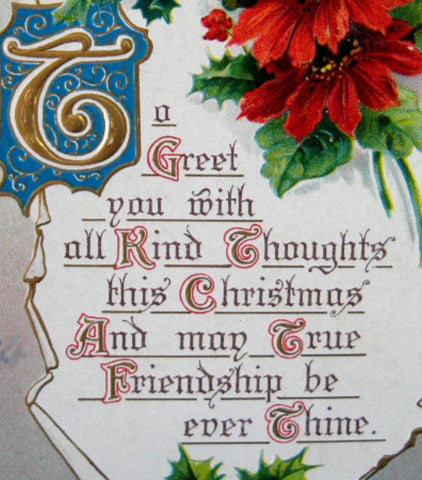 To
Greet
you with
all Kind Thoughts
this Christmas
And may True
Friendship be
ever Thine.